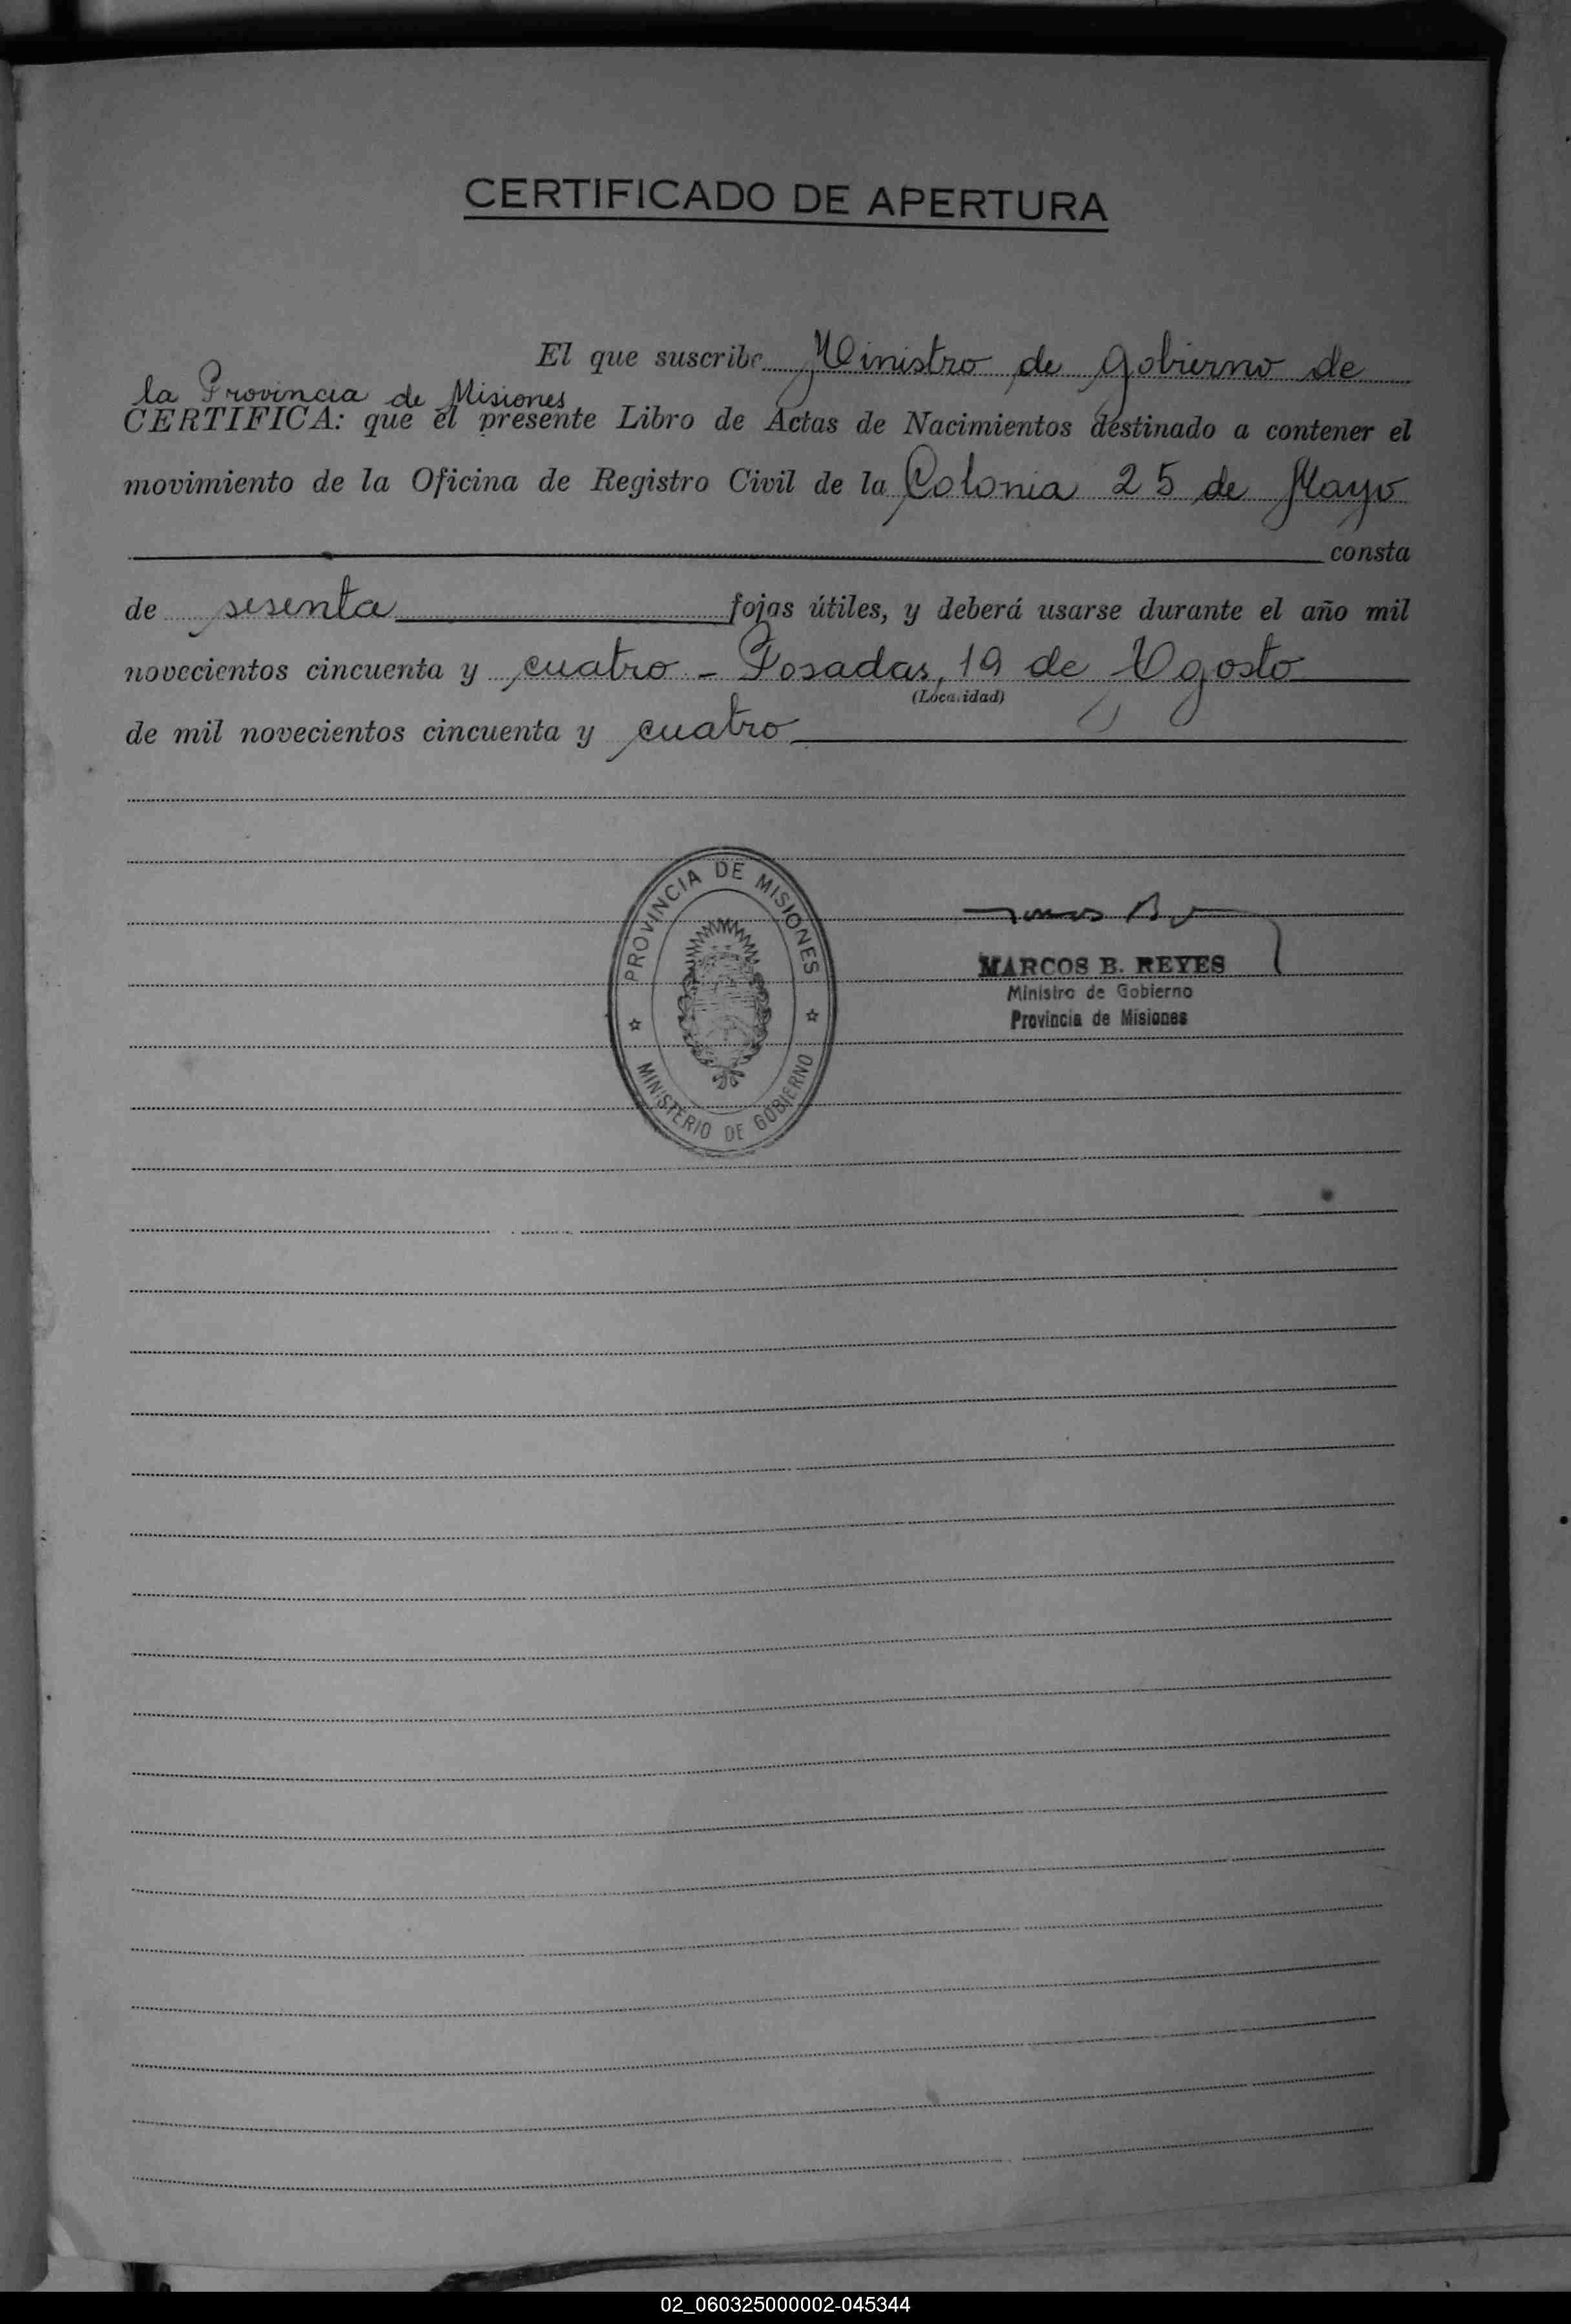 CERTIFICADO DE APERTURA
El que suscribe Ministro de Gobierno de
la Provincia de Misiones
CERTIFICA: que el presente Libro de Actas de Nacimientos destinado a contener el
movimiento de la Oficina de Registro Civil de la Colonia 25 de Mayo
consta
de sesenta fojas útiles, y deberá usarse durante el año mil
novecientos cincuenta y cuatro - Posadas, 19 de Agosto
(Localidad)
de mil novecientos cincuenta y cuatro
PROVINCIA DE MISIONES
MINISTERIO DE GOBIERNO
MARCOS B. REYES
Ministro de Gobierno
Provincia de Misiones
02_060325000002-045344